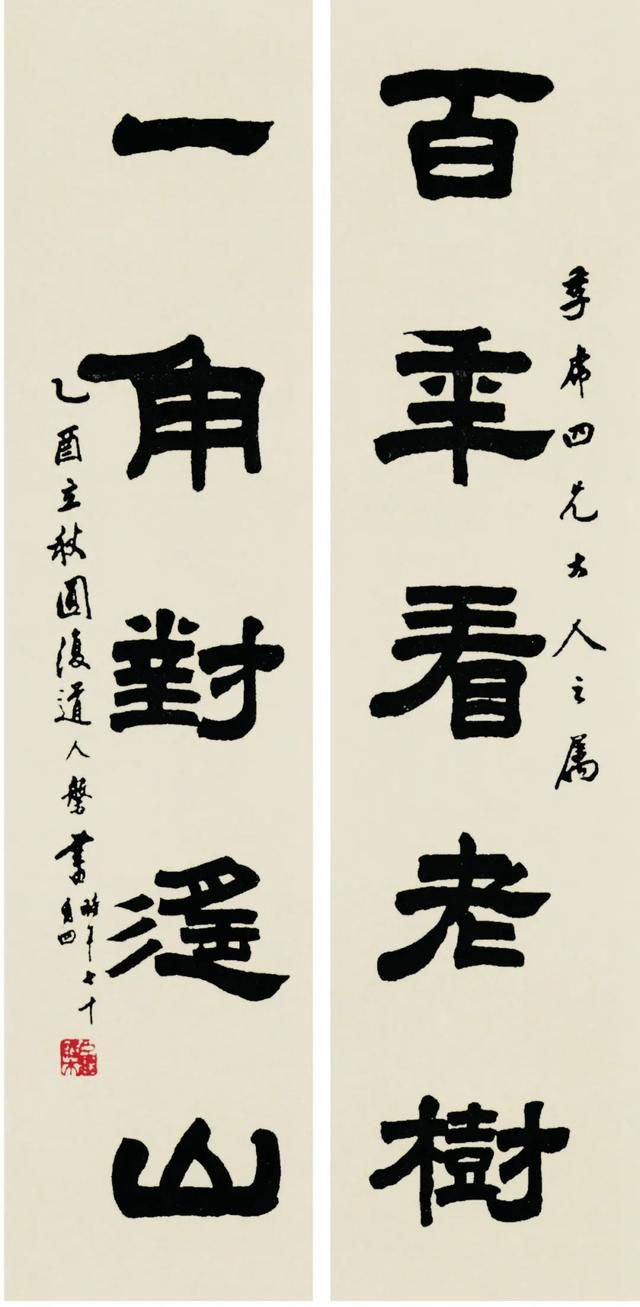 百年看老樹
四兄大人之属
一角對遙山
乙酉立秋圓復道人書
時年七十
有四